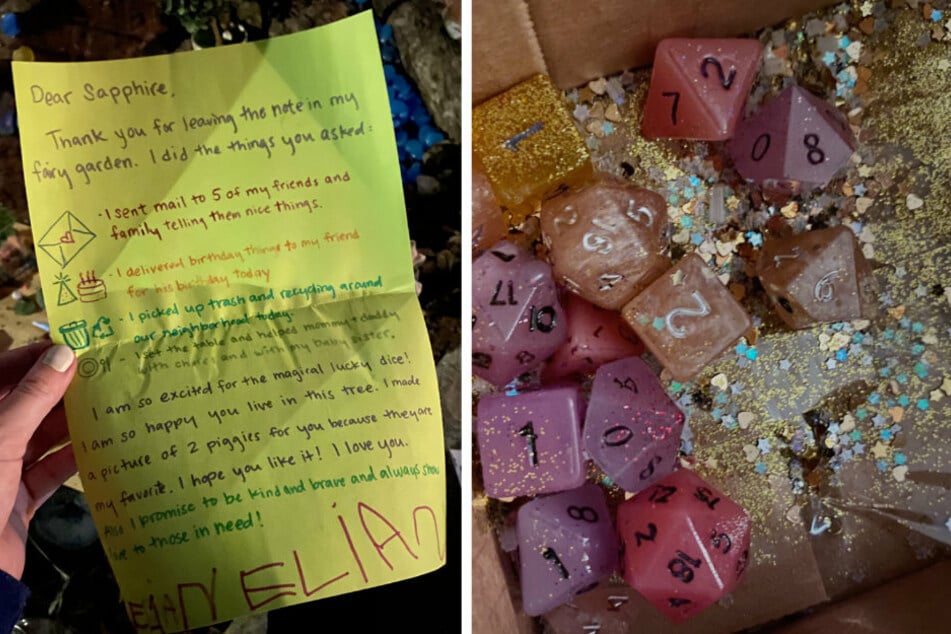 Dear Sapphire,
Thank you for leaving the note in my
fairy garden. I did the things you asked:
- I sent mail to 5 of my friends and
family telling them nice things.
- I delivered birthday things to my friend
for his birthday today
- I picked up trash and recycling around
our neighborhood today.
- I set the table and helped mommy + daddy
with chores and with my baby sister.
I am so excited for the magical lucky dice!
I am so happy you live in this tree. I made
a picture of 2 piggies for you because they are
my favorite. I hope you like it! I love you.
Also I promise to be kind and brave and always show
love to those in need!
ELIAN
7 2
0 8
1
5
18
4
2
6
17 10
1
4
0
8
1
12 15
2 5
18
7